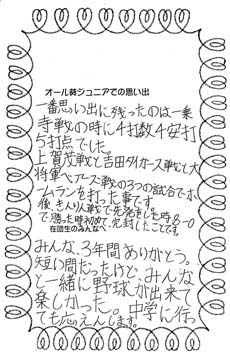 オール葵ジュニアでの思い出
一番思い出に残ったのは一乗
寺戦の時に4打数4安打
5打点でした。
上賀茂戦と吉田タイガース戦と大
将軍ベアーズ戦の3つの試合でホー
ムランを打った事です。
後、きんりん戦で先発をした時8-0
で勝った時初めて完封したことです。
在団生のみんなへ
みんな、3年間ありがとう。
短い間だったけど、みんな
と一緒に野球が出来て
楽しかった。中学に行っ
ても応えんします。